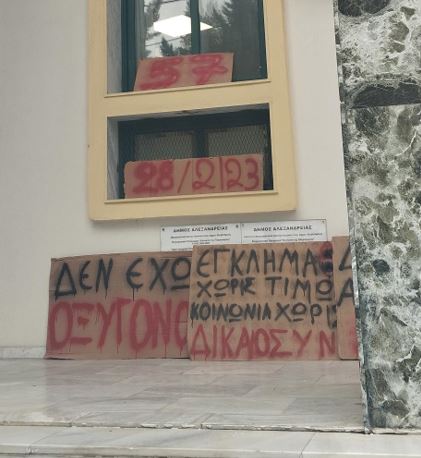 57
28/2/23
ΔΗΜΟΣ ΑΛΕΞΑΝΔΡΕΙΑΣ
ΔΗΜΟΣ ΑΛΕΞΑΝΔΡΕΙΑΣ
ΔΕΝ ΕΧΩ
ΟΞΥΓΟΝΟ
ΕΓΚΛΗΜΑ
ΧΩΡΙΣ ΤΙΜΩ
ΚΟΙΝΩΝΙΑ ΧΩΡΙΣ
ΔΙΚΑΙΟΣΥΝ